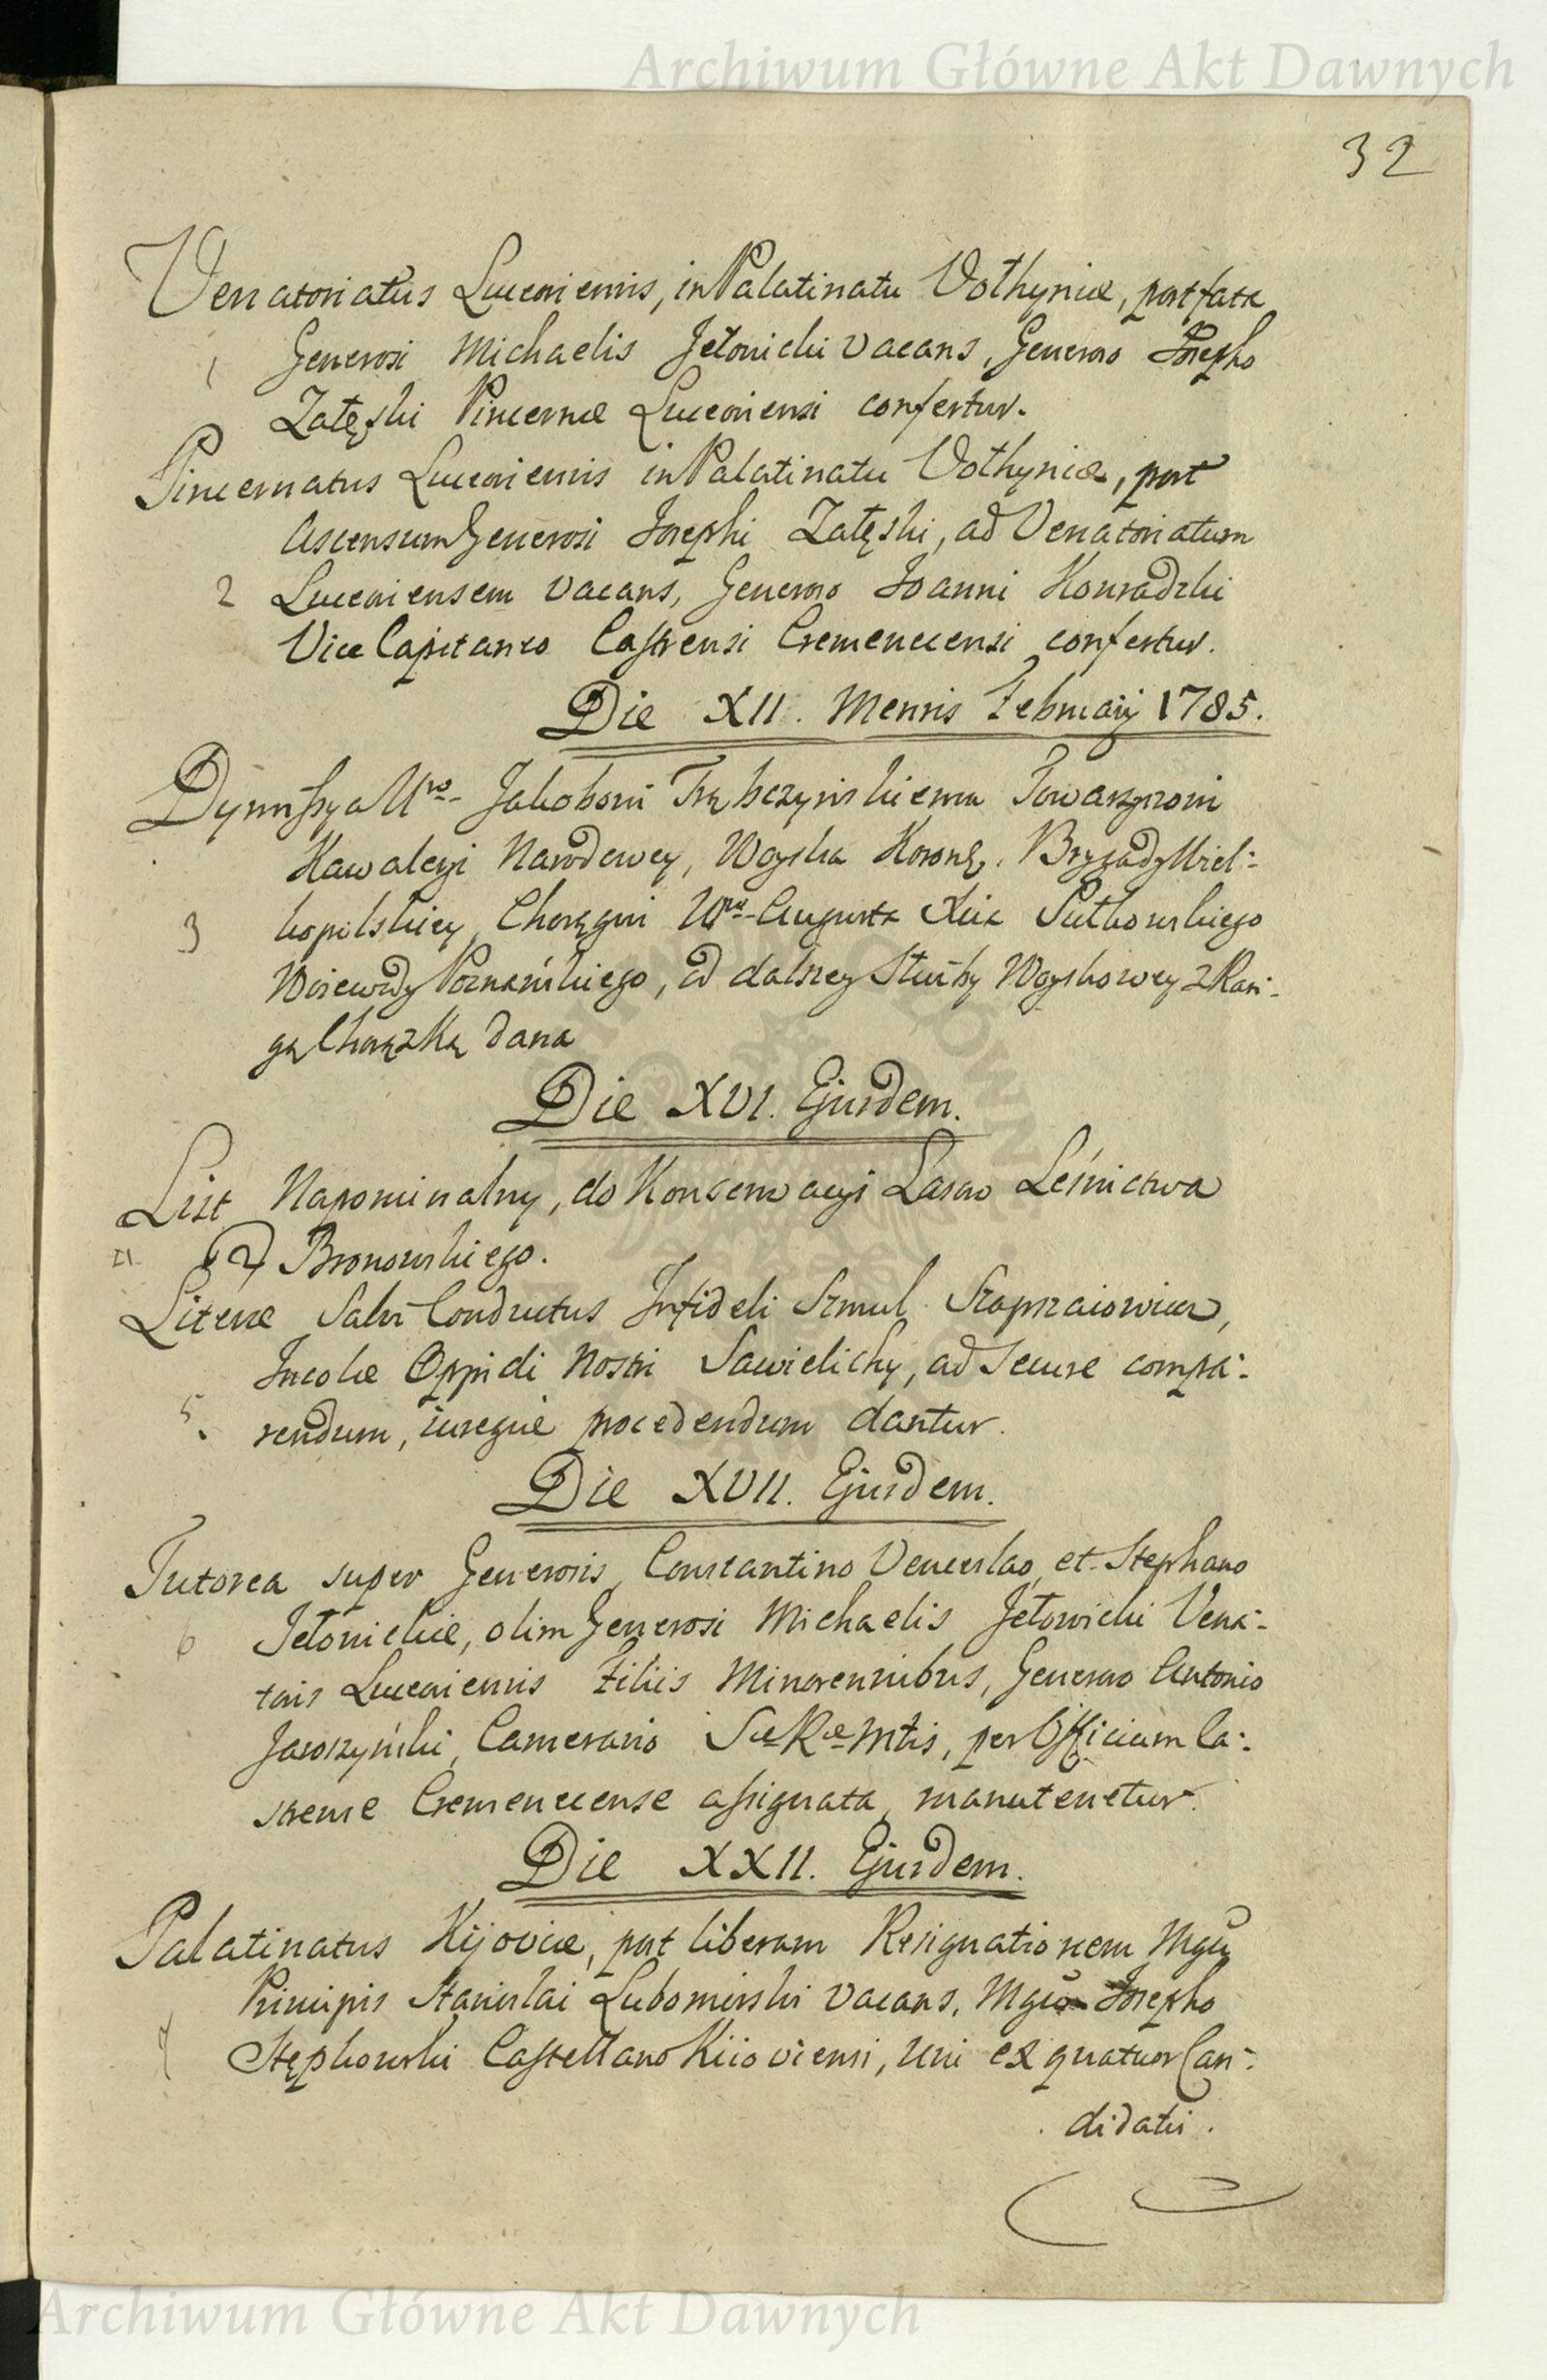 Archiwum Główne Akt Dawnych
32
Venatoriatus Luceoriensis, in Palatinatu Volhyniæ, post fata
1 Generosi Michaelis Jełowicki vacans, Generoso Josepho
Załęski Pincernæ Luceoriensi confertur.
Pincernatus Luceoriensis in Palatinatu Volhyniæ, post
Ascensum Generosi Josephi Załęski, ad Venatoriatum
2 Luceoriensem vacans, Generoso Joanni Konradzki
Vice Capitaneo Castrensi Cremenecensi confertur.
Die XII. Mensis Februarij 1785.
Dymissya Uro- Jakobowi Trębczyńskiemu Towarzyszowi
Kawaleryi Narodowey, Woyska Koronẹ. Brygady Wiel-
3 kopolskiey, Chorągwi Wgo Augusta Xcia Sułkowskiego
Wojewody Poznańskiego, od dalszey Służby Woyskowey z Ran-
gą Chorążką dana
Die XVI. Ejusdem.
List Napominalny, do Konserwacyi Lasow Leśnictwa
4. Bronowskiego.
Literæ Salvi Conductus Infideli Szmul
Incolæ Oppidi Nostri Sawielichy, ad secure compa-
5. rendum, iureque procedendum dantur.
Die XVII. Ejusdem.
Tutorea super Generosis, Constantino Venceslao, et Stephano
6 Jełowickie, olim Generosi Michaelis Jełowicki Vena-
toris Luceoriensis Filiis Minorennibus, Generoso Antonio
Jaroszyński, Camerario Sæ Ræ Mtis, per Officium Ca-
strense Cremenecense assignata, manutenetur.
Die XXII. Ejusdem.
Palatinatus Kijoviæ, post liberam Resignationem Mgci
Principis Stanislai Lubomirski vacans, Mgco Josepho
7 Stępkowski Castellano Kiioviensi, uni ex quatuor Can-
didatis.
Archiwum Główne Akt Dawnych